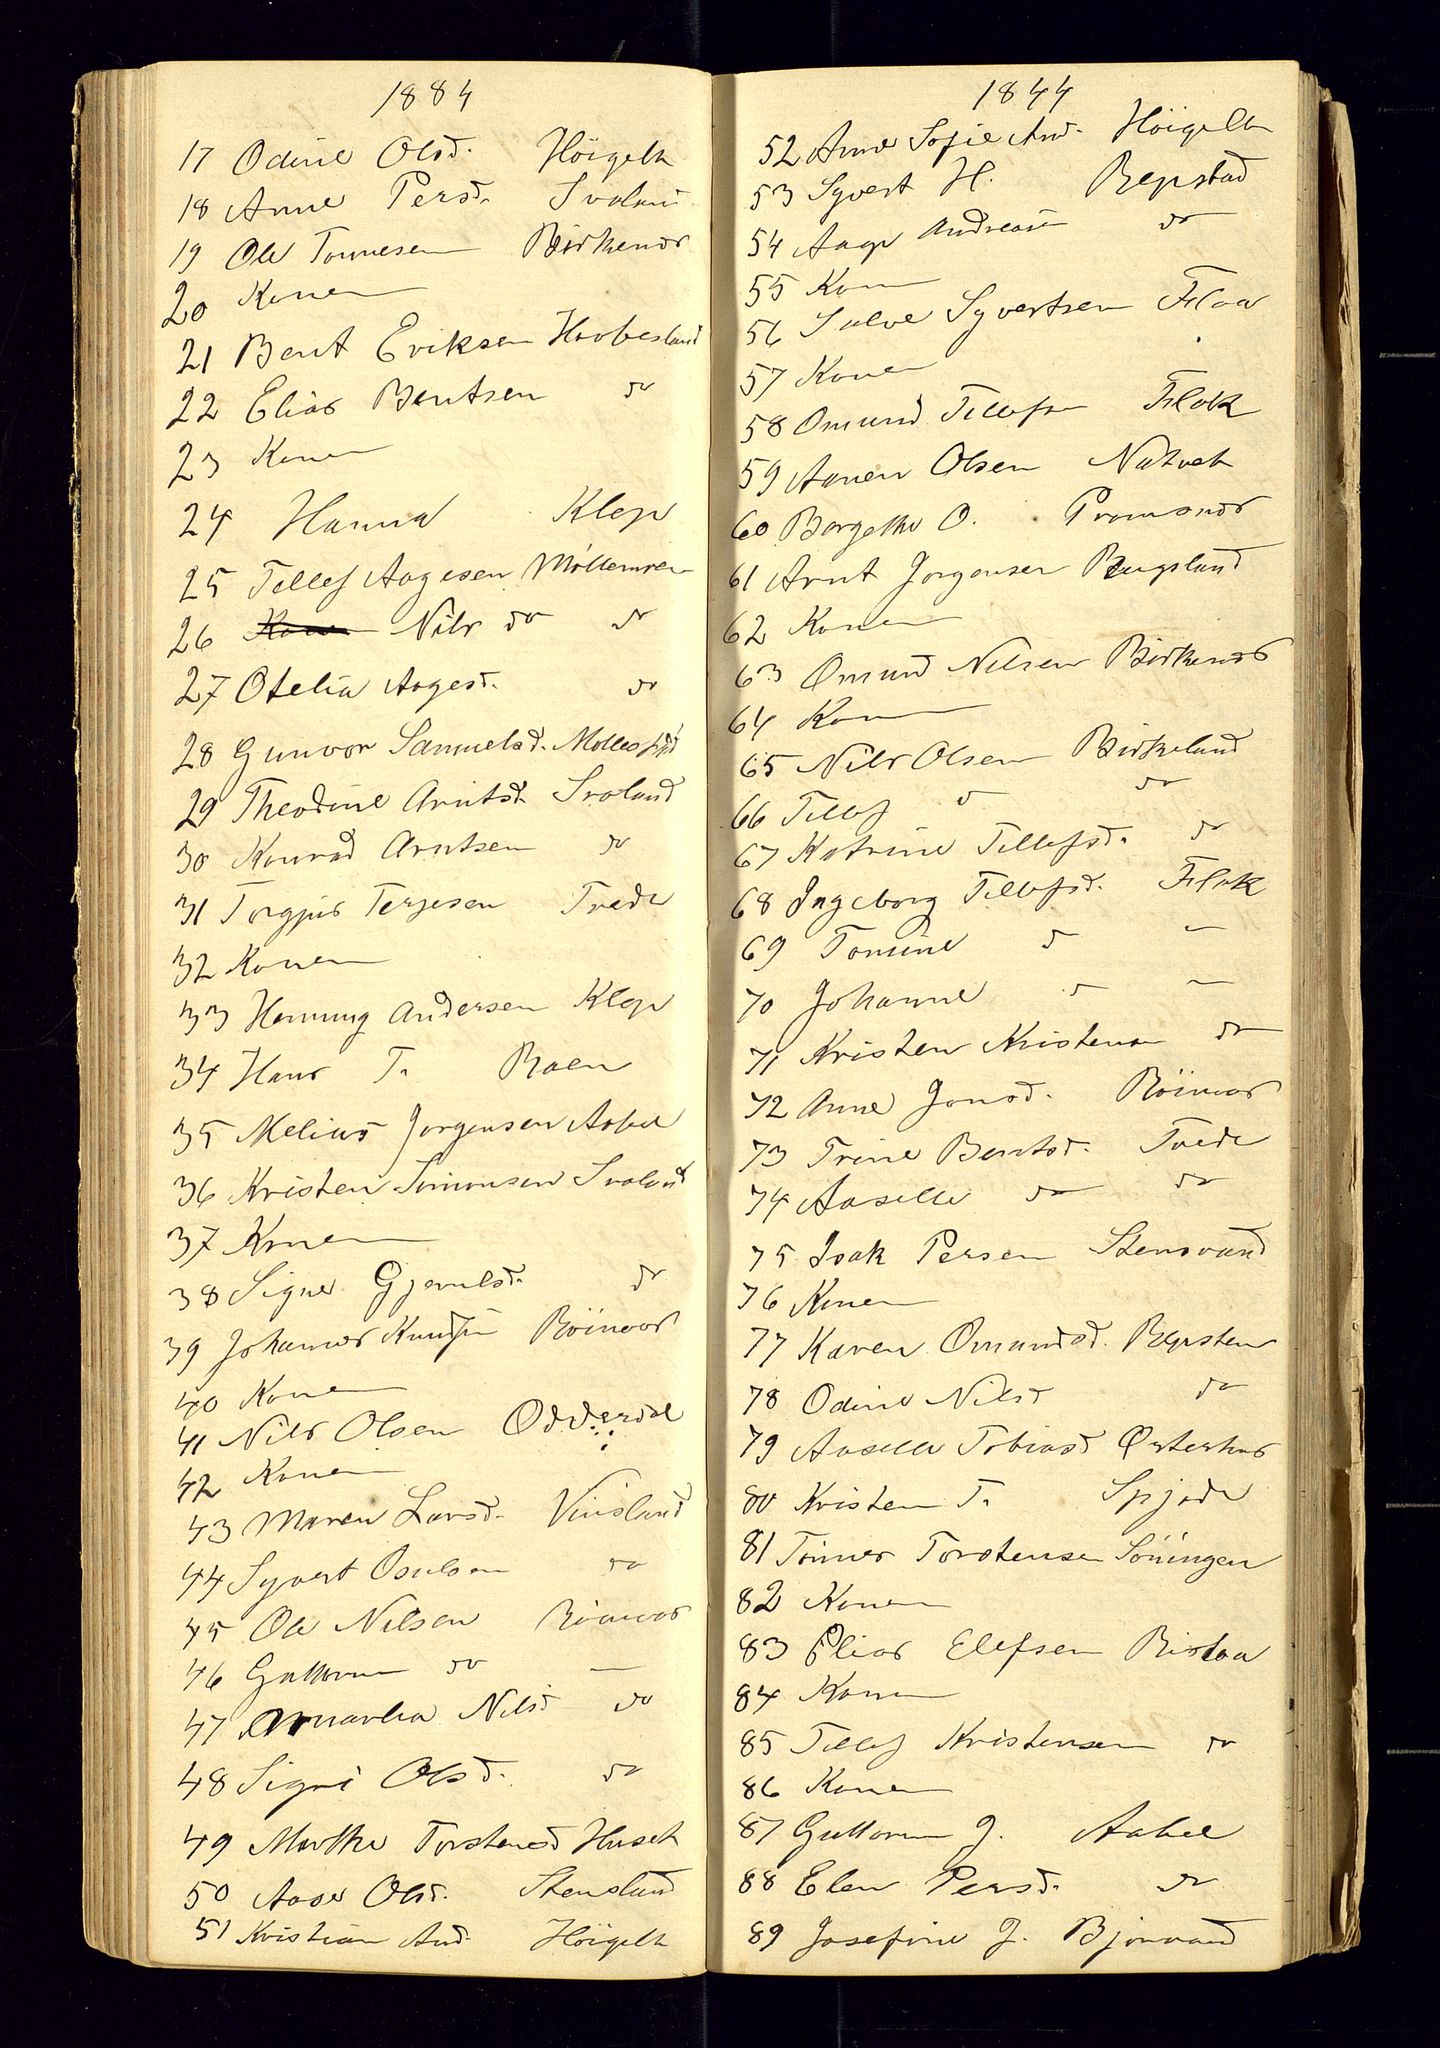 1884
17 Odine Olsd. Höigelt
18 Anne Persd. Svaland
19 Ole Tønnesen Birkenes
20 Konen
21 Bent Eriksen Hovbesland
22 Elias Bentsen do
23 Konen
24 Hanna Klep
25 Tellef Aagesen Möllemoen
26 Nils do do
27 Otelia Aagesd. do
28 Gunvor Samuelsd.
29 Theodine Arntsd. Svaland
30 Konrad Arntsen do
31 Torgjus Terjesen Tvede
32 Konen
33 Henning Andersen Klep
34 Hans T. Roen
35 Melius Jorgensen Aabel
36 Kristen Simonsen Svaland
37 Konen
38 Signe Gjerulsd. do
39 Johannes Knudsen Röinaas
40 Konen
41 Nils Olsen Odderdal
42 Konen
43 Maren Larsd. Vinsland
44 Syvert Osulsen do
45 Ole Nilsen Röinaas
46 Guttorm do —
47 Nilsd do
48 Sigri Olsd. do
49 Marthe Torstensd Huset
50 Aase Olsd. Stensland
51 Kristian And. Höigelt
1844
52 Anne Sofie And. Höigelt
53 Syvert H. Repstad
54 Aage Andreasen do
55 Konen
56 Salve Syvertsen Flaa
57 Konen
58 Omund Tellefsen Flak
59 Aanen Olsen Natvet
60 Borgethe O.
61 Arnt Jorgensen Rugsland
62 Konen
63 Omund Nilsen Birkenes
64 Konen
65 Nils Olsen Birkeland
66 Tellef d do
67 Katrine Tellefsd. do
68 Ingeborg Tellefsd. Flak
69 Tomine d —
70 Johanne d —
71 Kristen Kristensen do
72 Anne Jonsd. Röinaas
73 Trine Bentsd. Tvede
74 Aaselle do do
75 Isak Persen Stensvand
76 Konen
77 Karen Omundsd. Repsten
78 Odine Nilsd do
79 Aaselle Tobiasd Østerhus
80 Kristen T. Spjode
81 Tönnes Torstensen Söningen
82 Konen
83 Elias Elefsen Risløa
84 Konen
85 Tellef Kristensen do
86 Konen
87 Guttorm J. Aabel
88 Elen Persd. do
89 Josefine J. Bjorvand